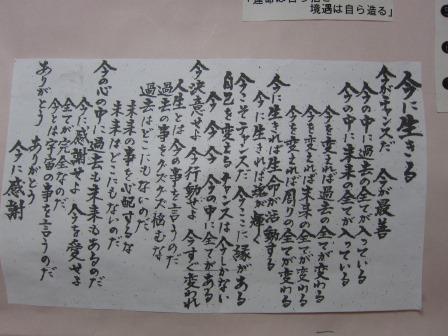 「運命は自ら招き
境遇は自ら造る」
今に生きる
今がチャンスだ 今が最善
今の中に過去の全てが入っている
今の中に未来の全てが入っている
今を変えれば過去の全てが変わる
今を変えれば未来の全てが変わる
今を変えれば周りの全てが変わる
今に生きれば生命が活動する
今に生きれば魂が輝く
今こそチャンスだ 今ここに縁がある
自己を変えるチャンスは今しかない
今 今 今 今の中に全てがある
今決意せよ 今行動せよ 今すぐ変われ
人生とは今の事を言うのだ
過去の事をクズクズ悩むな
過去はどこにもないのだ
未来の事を心配するな
未来はどこにもないのだ
今の心の中に過去も未来もあるのだ
今に感謝せよ 今を愛せよ
全てが完全なのだ
今とは宇宙の事を言うのだ
ありがとう ありがとう
今に感謝